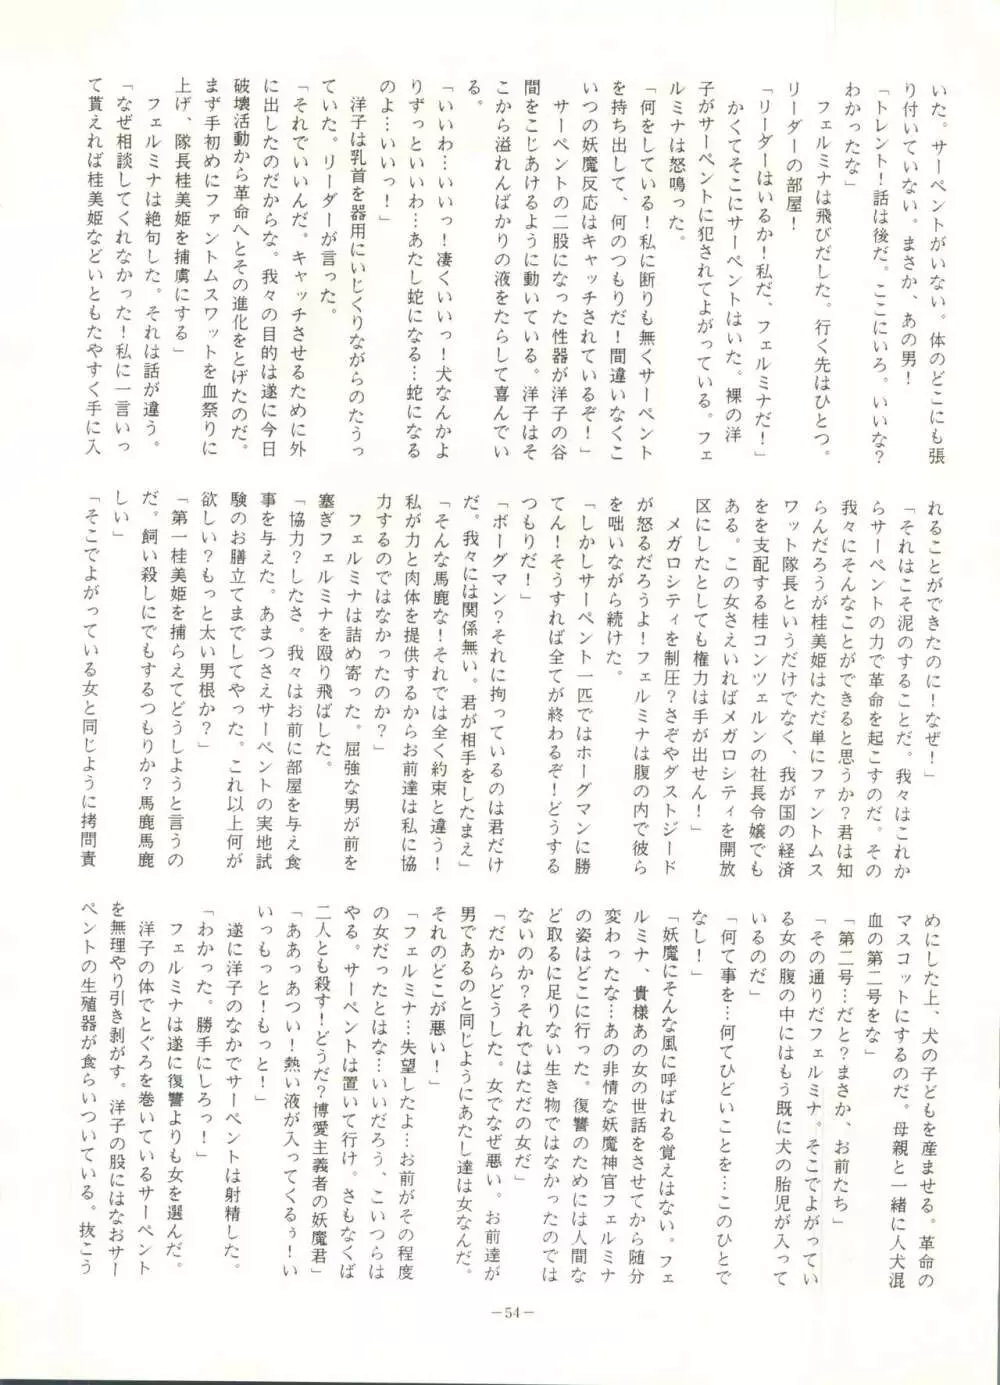 いた。サーペントがいない。体のどこにも張
り付いていない。まさか、あの男！
「トレント！話は後だ。ここにいろ。いいな？
わかったな」
フェルミナは飛びだした。行く先はひとつ。
リーダーの部屋！
「リーダーはいるか！私だ、フェルミナだ！」
かくてそこにサーペントはいた。裸の洋
子がサーペントに犯されてよがっている。フェ
ルミナは怒鳴った。
「何をしている！私に断りも無くサーペント
を持ち出して、何のつもりだ！間違いなくこ
いつの妖魔反応はキャッチされているぞ！」
サーペントの二股になった性器が洋子の谷
間をこじあけるように動いている。洋子はそ
こから溢れんばかりの液をたらして喜んでい
る。
「いいわ…いいっ！凄くいいっ！犬なんかよ
りずっといいわ…あたし蛇になる…蛇になる
のよ…いいっ！」
洋子は乳首を器用にいじくりながらのたうっ
ていた。リーダーが言った。
「それでいいんだ。キャッチさせるために外
に出したのだからな。我々の目的は遂に今日
破壊活動から革命へとその進化をとげたのだ。
まず手初めにファントムスワットを血祭りに
上げ、隊長桂美姫を捕虜にする」
フェルミナは絶句した。それは話が違う。
「なぜ相談してくれなかった！私に一言いっ
て貰えれば桂美姫などいともたやすく手に入
れることができたのに！なぜ！」
「それはこそ泥のすることだ。我々はこれか
らサーペントの力で革命を起こすのだ。その
我々にそんなことができると思うか？君は知
らんだろうが桂美姫はただ単にファントムス
ワット隊長というだけでなく、我が国の経済
をを支配する桂コンツェルンの社長令嬢でも
ある。この女さえいればメガロシティを開放
区にしたとしても権力は手が出せん！」
メガロシティを制圧？さぞやダストジード
が怒るだろうよ！フェルミナは腹の内で彼ら
を咄いながら続けた。
「しかしサーペント一匹ではホーグマンに勝
てん！そうすれば全てが終わるぞ！どうする
つもりだ！」
「ボーグマン？それに拘っているのは君だけ
だ。我々には関係無い。君が相手をしたまえ」
「そんな馬鹿な！それでは全く約束と違う！
私が力と肉体を提供するからお前達は私に協
力するのではなかったのか？」
フェルミナは詰め寄った。屈強な男が前を
塞ぎフェルミナを殴り飛ばした。
「協力？したさ。我々はお前に部屋を与え食
事を与えた。あまつさえサーペントの実地試
験のお膳立てまでしてやった。これ以上何が
欲しい？もっと太い男根か？」
「第一桂美姫を捕らえてどうしようと言うの
だ。飼い殺しにでもするつもりか？馬鹿馬鹿
しい」
「そこでよがっている女と同じように拷問責
めにした上、犬の子どもを産ませる。革命の
マスコットにするのだ。母親と一緒に人犬混
血の第二号をな」
「第二号…だと？まさか、お前たち」
「その通りだフェルミナ。そこでよがってい
る女の腹の中にはもう既に犬の胎児が入って
いるのだ」
「何て事を…何てひどいことを…このひとで
なし！」
「妖魔にそんな風に呼ばれる覚えはない。フェ
ルミナ、貴様あの女の世話をさせてから随分
変わったな…あの非情な妖魔神官フェルミナ
の姿はどこに行った。復讐のためには人間な
ど取るに足りない生き物ではなかったのでは
ないのか？それではただの女だ」
「だからどうした。女でなぜ悪い。お前達が
男であるのと同じようにあたし達は女なんだ。
それのどこが悪い！」
「フェルミナ…失望したよ…お前がその程度
の女だったとはな…いいだろう、こいつらは
やる。サーペントは置いて行け。さもなくば
二人とも殺す！どうだ？博愛主義者の妖魔君」
「ああっあつい！熱い液が入ってくるぅ！い
いっもっと！もっと！」
遂に洋子のなかでサーペントは射精した。
「わかった。勝手にしろっ！」
フェルミナは遂に復讐よりも女を選んだ。
洋子の体でとぐろを巻いているサーペント
を無理やり引き剥がす。洋子の股にはなおサー
ペントの生殖器が食らいついている。抜こう
－54－